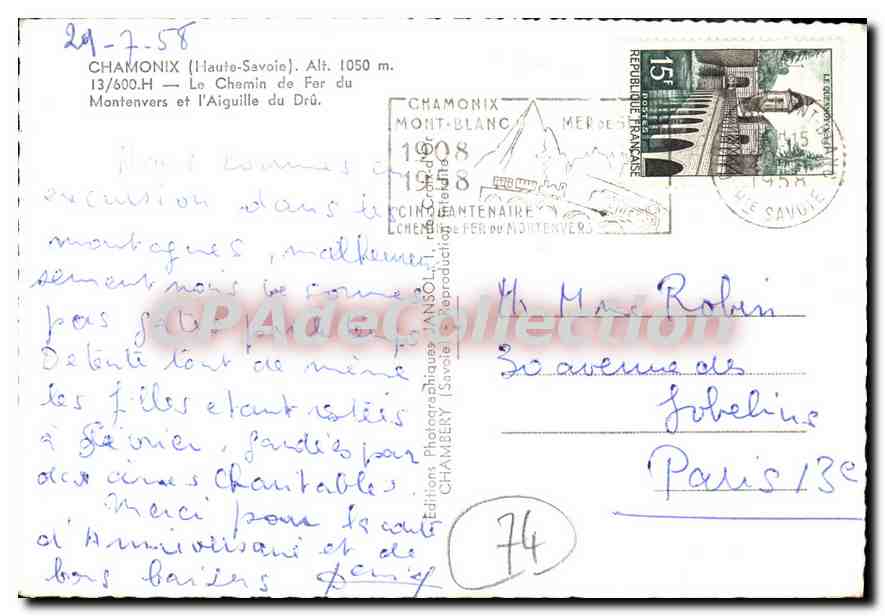 29-7-58
CHAMONIX (Haute-Savoie). Alt. 1050 m.
13/600.H — Le Chemin de Fer du
Montenvers et l'Aiguille du Drû.
CHAMONIX
MONT-BLANC
MER DE
1908
1958
CINQUANTENAIRE
CHEMIN DE FER DU MONTENVERS
15F
POSTES
REPUBLIQUE FRANÇAISE
LE QUESNOY
15
1958
HTE SAVOIE
sommes en
excursion dans les
montagnes, malheureu
sement nous ne sommes
pas gatés par le temps
Detente tout de même
les filles etant restées
à , gardées par
des âmes charitables.
Merci pour la carte
d'Anniversaire et de
bons baisers
Editions Photographiques JANSOL, 1, rue Croix-d'Or
CHAMBERY (Savoie) - Reproduction interdite
CPAdeCollection
M. Mme Robin
30 avenue des
Gobelins
Paris 13e
74